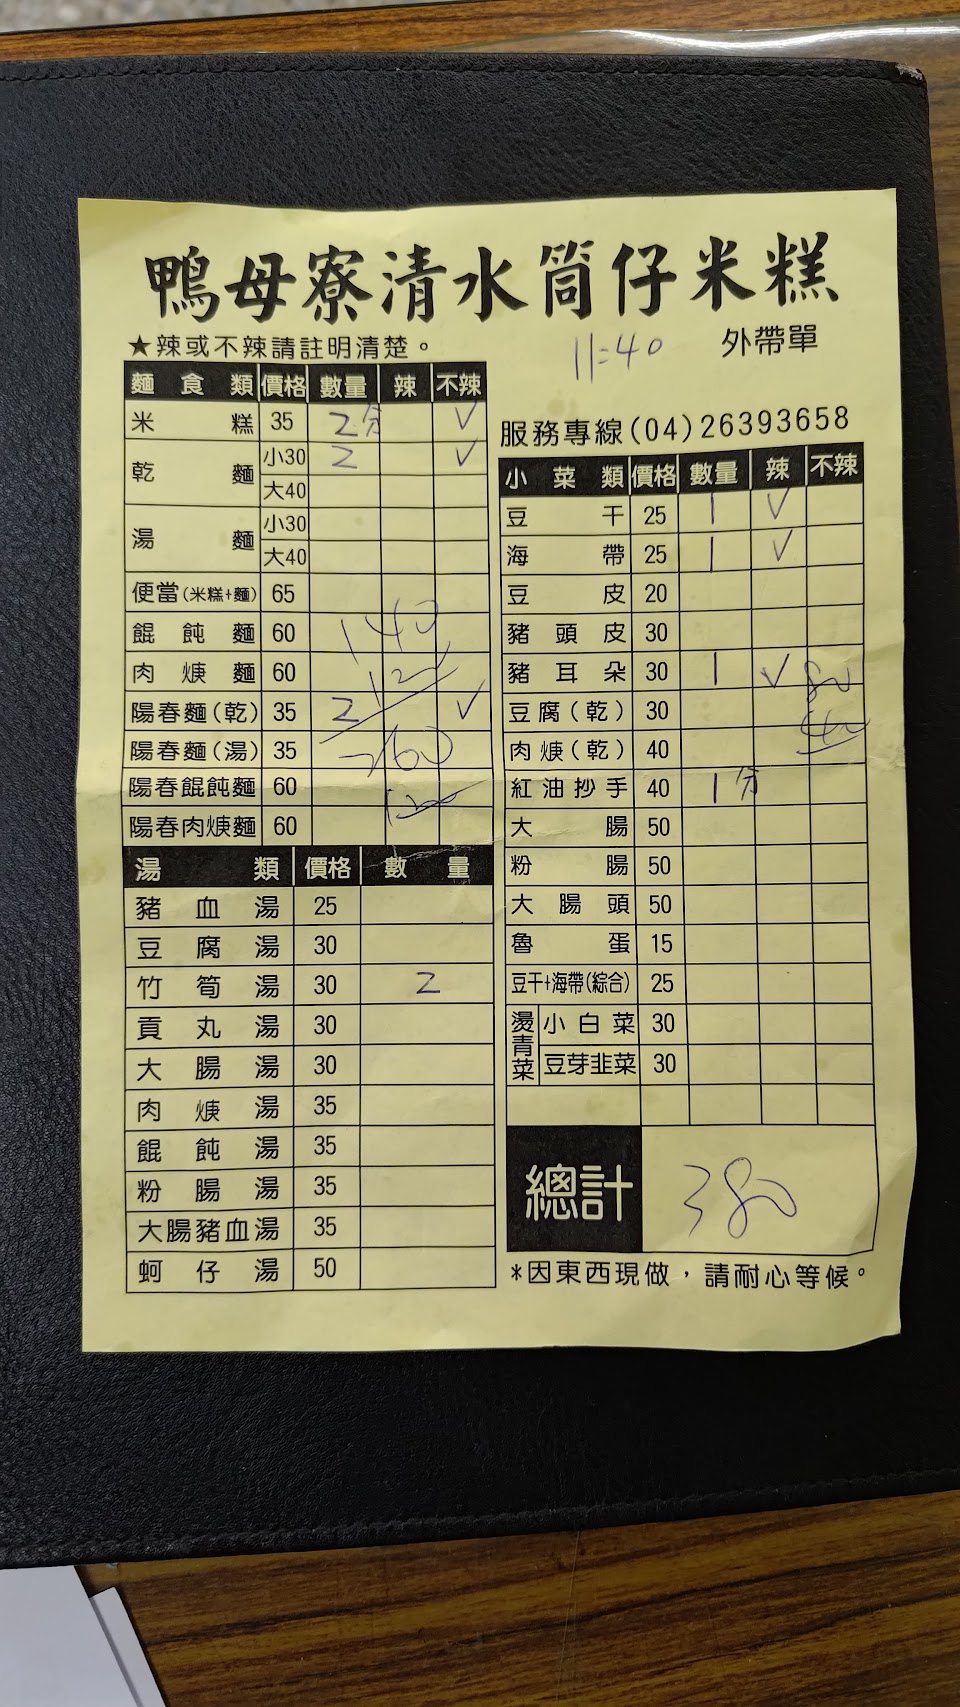 鴨母寮清水筒仔米糕
★辣或不辣請註明清楚。
11:40
外帶單
麵食類 價格 數量 辣 不辣
米糕 35 2分 ✓
乾麵 小30 2 ✓
大40
湯麵 小30
大40
便當(米糕+麵) 65
餛飩麵 60 140
肉焿麵 60 12
陽春麵(乾) 35 2 ✓
陽春麵(湯) 35 260
陽春餛飩麵 60
陽春肉焿麵 60
湯類 價格 數量
豬血湯 25
豆腐湯 30
竹筍湯 30 2
貢丸湯 30
大腸湯 30
肉焿湯 35
餛飩湯 35
粉腸湯 35
大腸豬血湯 35
蚵仔湯 50
服務專線(04)26393658
小菜類 價格 數量 辣 不辣
豆干 25 1 ✓
海帶 25 1 ✓
豆皮 20
豬頭皮 30
豬耳朵 30 1 ✓ 80
豆腐(乾) 30
肉焿(乾) 40
紅油抄手 40 1分
大腸 50
粉腸 50
大腸頭 50
魯蛋 15
豆干+海帶(綜合) 25
燙青菜 小白菜 30
豆芽韭菜 30
總計 380
*因東西現做，請耐心等候。